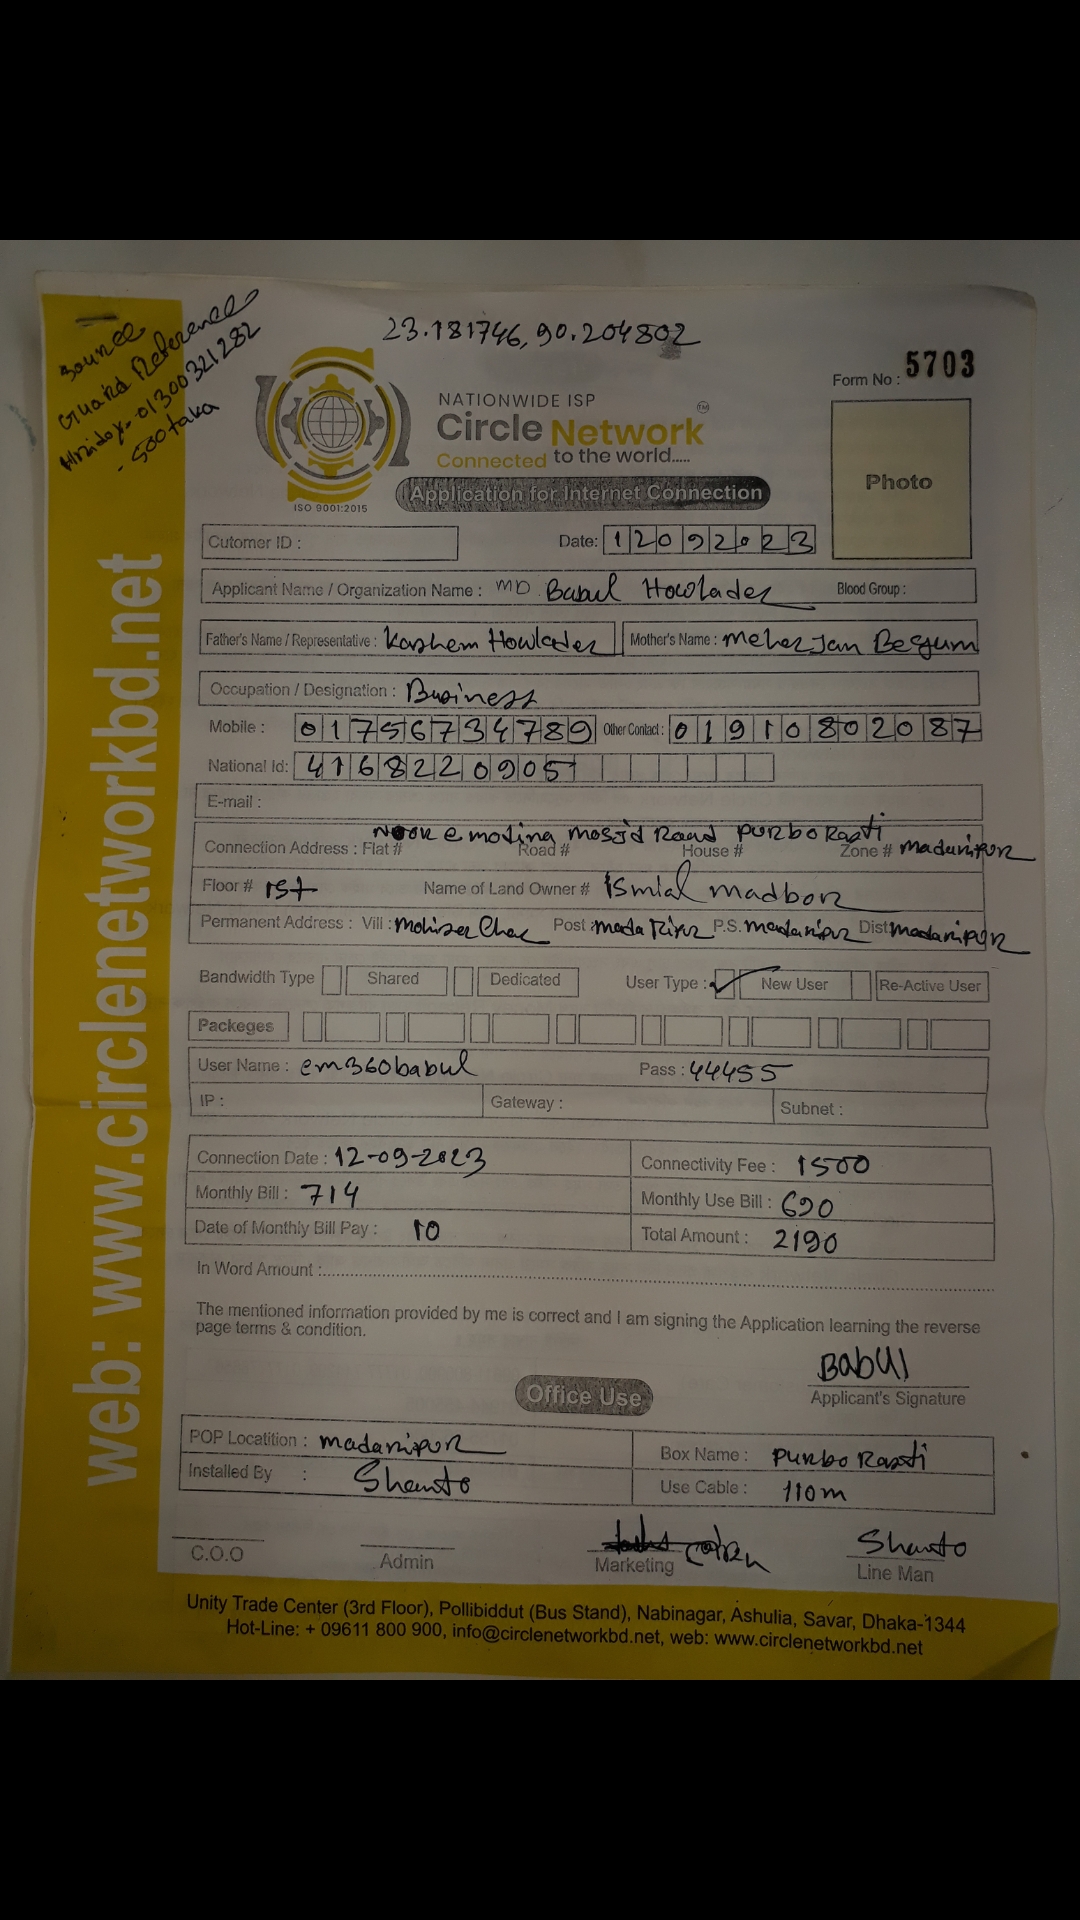 23.181746, 90.204802
Source
Guard Reference
Hridoy-01300321282
- 500 taka
Form No : 5703
NATIONWIDE ISP
Circle Network TM
Connected to the world.....
ISO 9001:2015
Application for Internet Connection
Photo
Cutomer ID :
Date: 12092023
Applicant Name / Organization Name : MD. Babul Howlader Blood Group :
Father's Name / Representative : Kashem Howlader Mother's Name : Meher Jan Begum
Occupation / Designation : Business
Mobile : 01756734789 Other Contact : 01910802087
National Id: 4168220905
E-mail :
Noor e modina mosjid Road Purbo Rasti
Connection Address : Flat # Road # House # Zone # Madaripur
Floor # 1st Name of Land Owner # ismial madbor
Permanent Address : Vill : Post : madaripur P.S. madaripur Dist madaripur
Bandwidth Type Shared Dedicated User Type : New User Re-Active User
Packeges
User Name : em360babul Pass : 44455
IP : Gateway : Subnet :
Connection Date : 12-09-2023 Connectivity Fee : 1500
Monthly Bill : 714 Monthly Use Bill : 690
Date of Monthly Bill Pay : 10 Total Amount : 2190
In Word Amount :
The mentioned information provided by me is correct and I am signing the Application learning the reverse
page terms & condition.
Babul
Applicant's Signature
Office Use
POP Locatition : madaripur Box Name : Purbo Rasti
Installed By : Shanto Use Cable : 110m
Shanto
C.O.O Admin Marketing Line Man
Unity Trade Center (3rd Floor), Pollibiddut (Bus Stand), Nabinagar, Ashulia, Savar, Dhaka-1344
Hot-Line: + 09611 800 900, info@circlenetworkbd.net, web: www.circlenetworkbd.net
web: www.circlenetworkbd.net